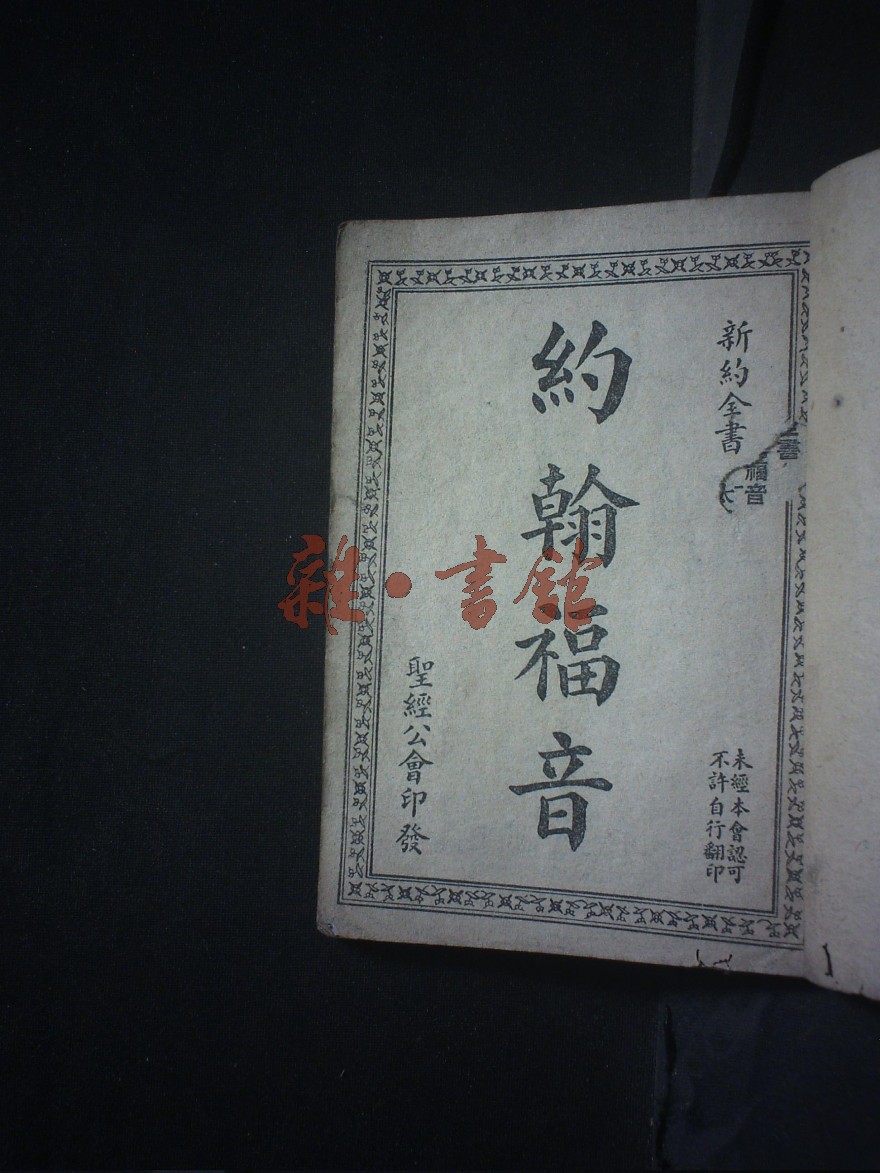 新約全書
未經本會認可
不許自行翻印
約翰福音
聖經公會印發
福音
雜·書館